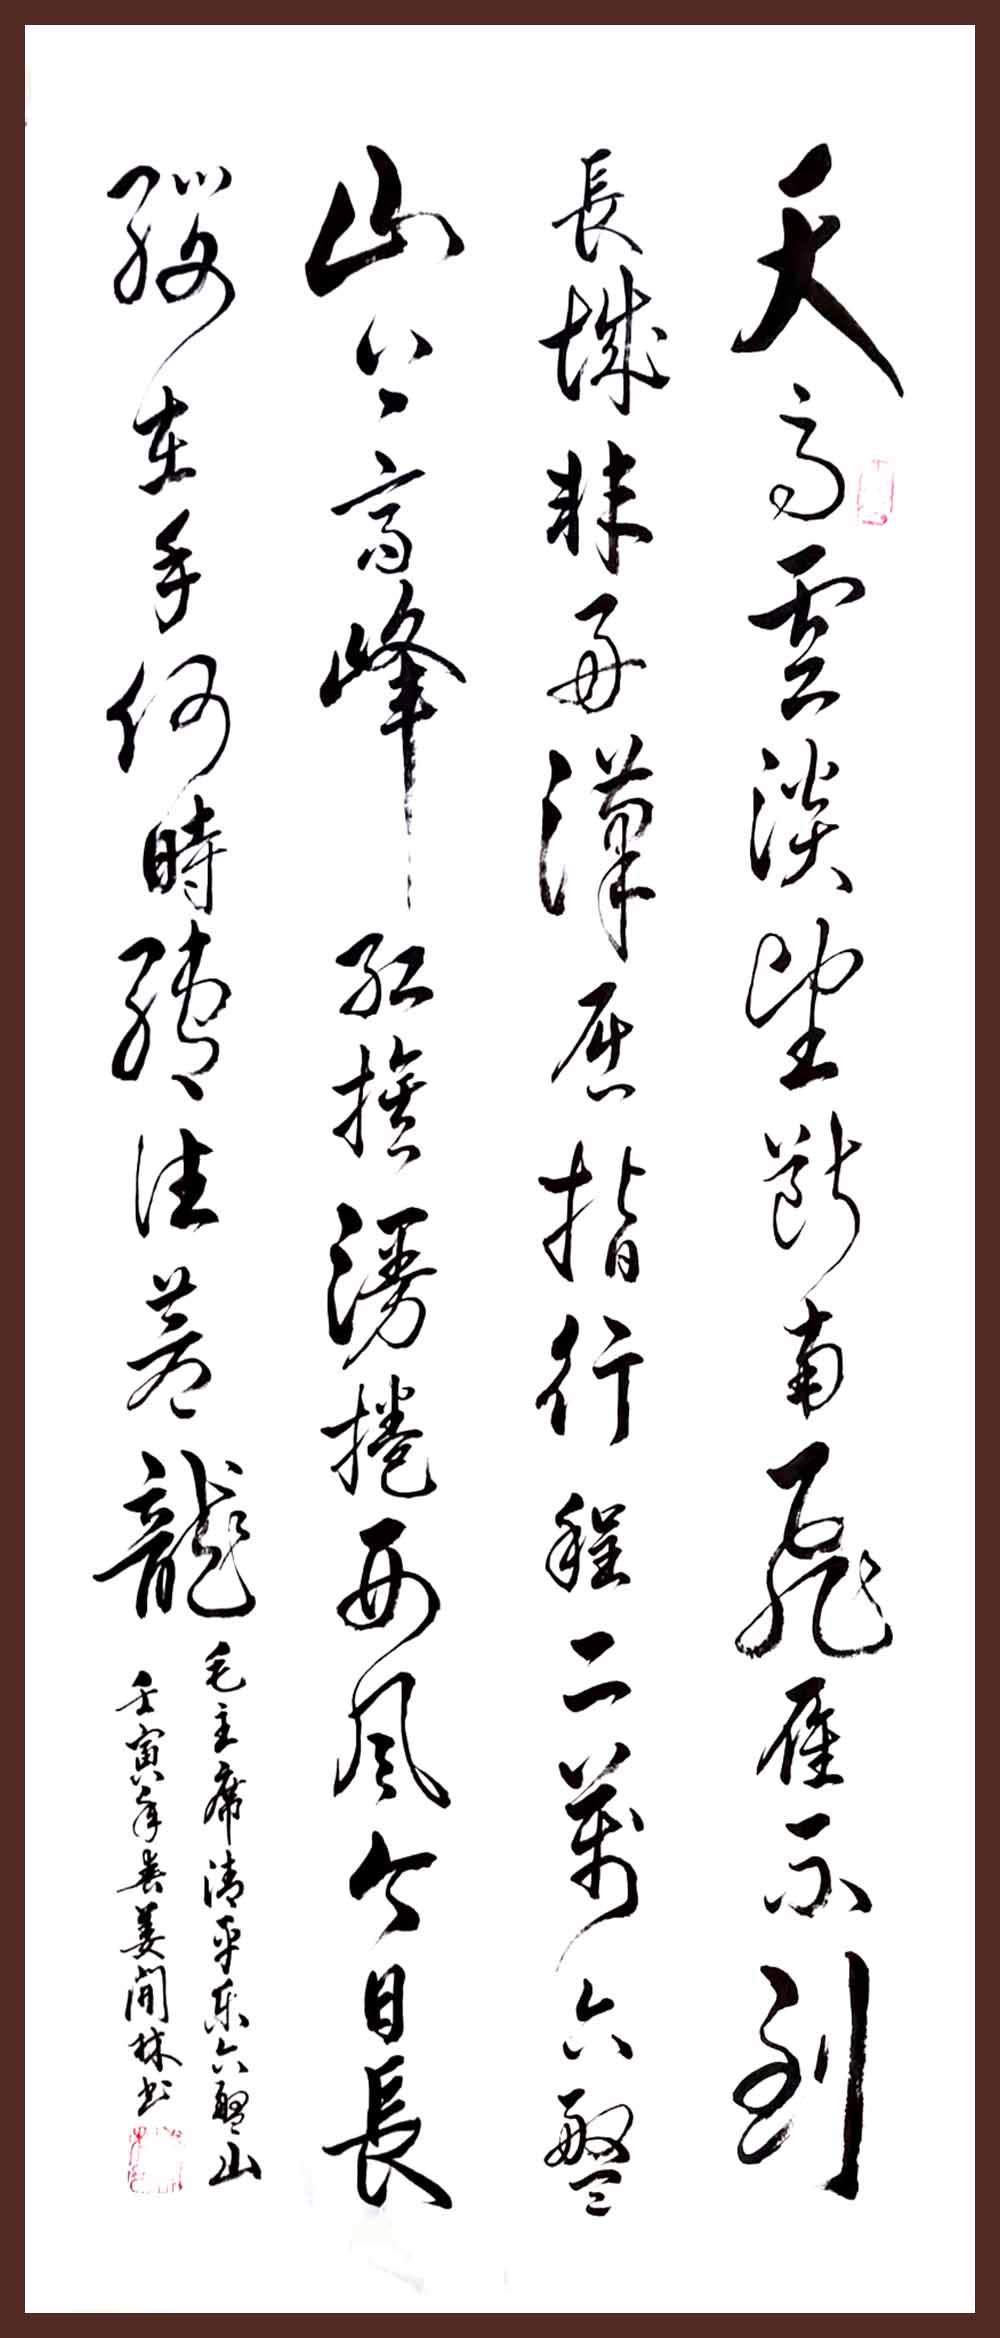 天高雲淡望斷南飛雁不到
長城非好漢屈指行程二萬六盤
山上高峰紅旗漫捲西風今日長
纓在手何時縛住蒼龍
毛主席清平乐六盤山
壬寅年春姜開林書